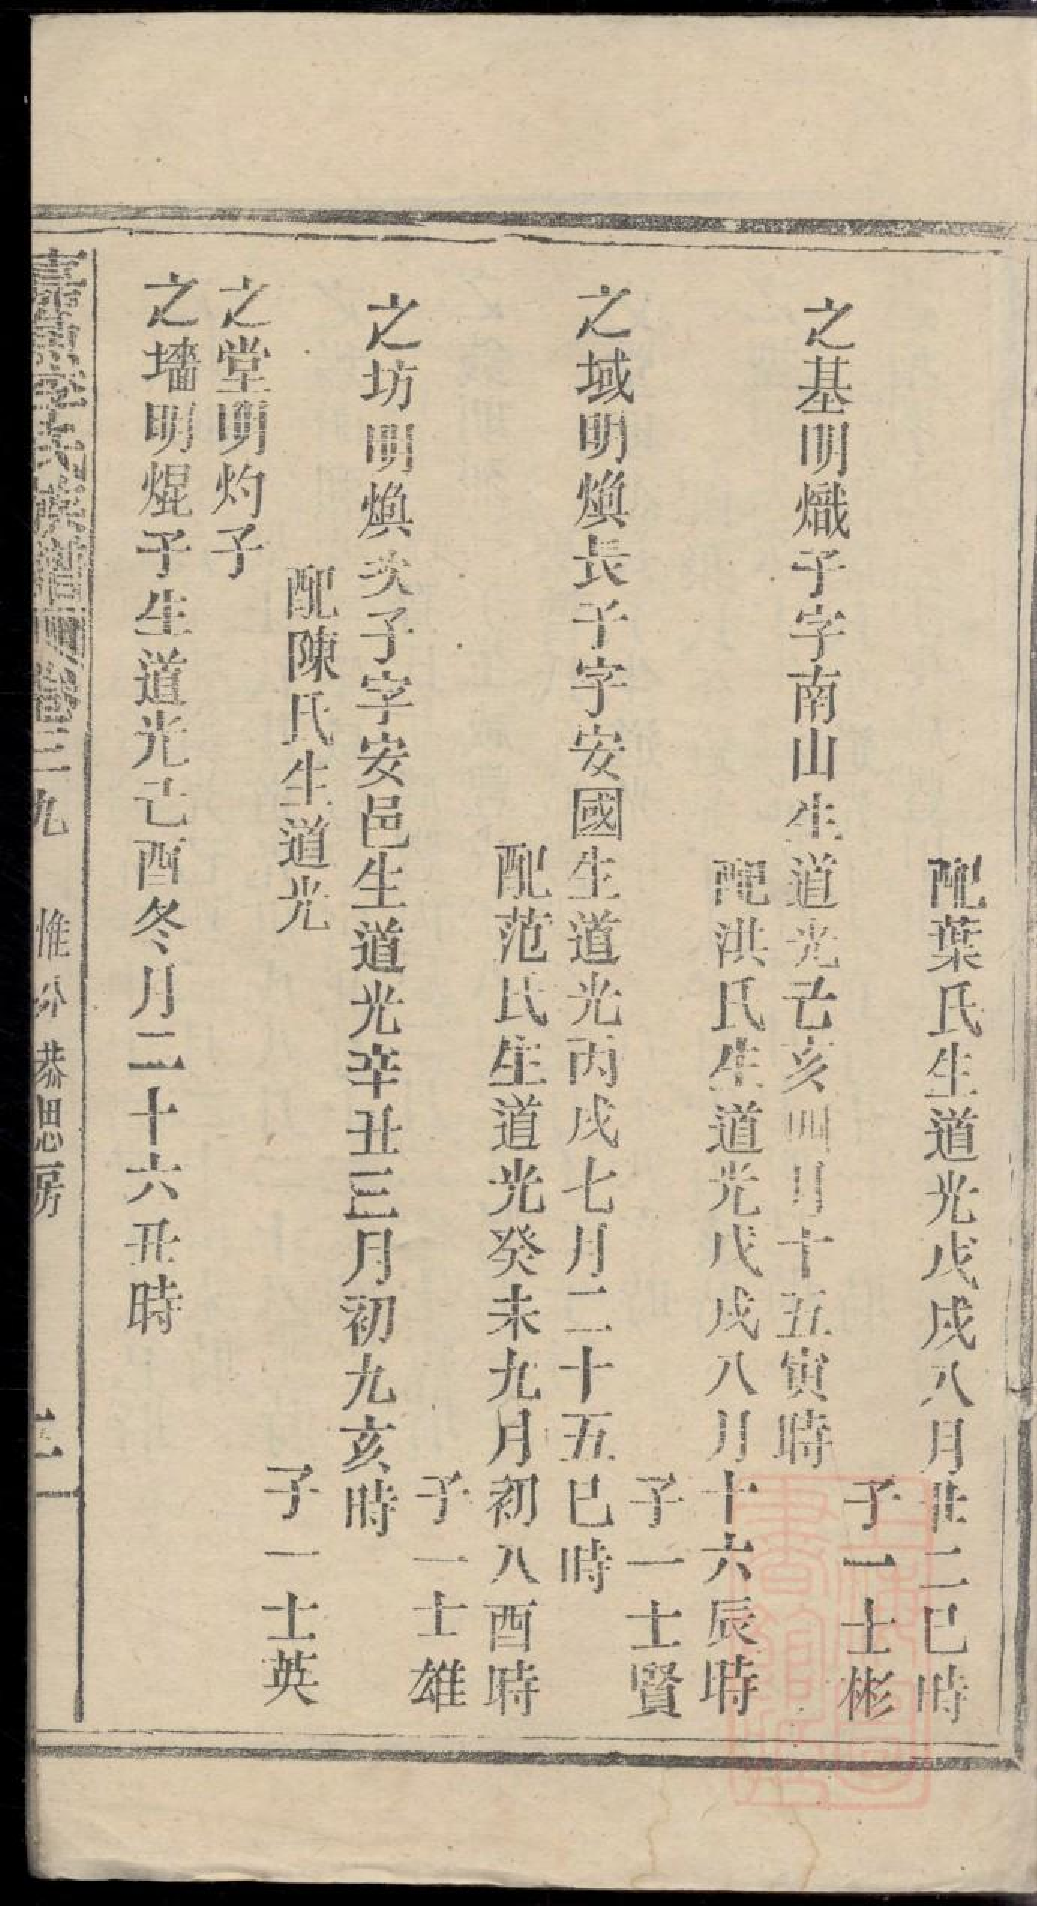 配葉氏生道光戊戌八月廿二巳時
子一士彬
之基明熾子字南山生道光己亥四月十五寅時
配洪氏生道光戊戌八月十六辰時
子一士賢
之域明煥長子字安國生道光丙戌七月二十五巳時
配范氏生道光癸未九月初八酉時
子一士雄
之坊明煥次子字安邑生道光辛丑三月初九亥時
配陳氏生道光
子一士英
之堂明灼子
之墻明焜子生道光己酉冬月二十六丑時
氏族譜 卷三九 惟公恭思房